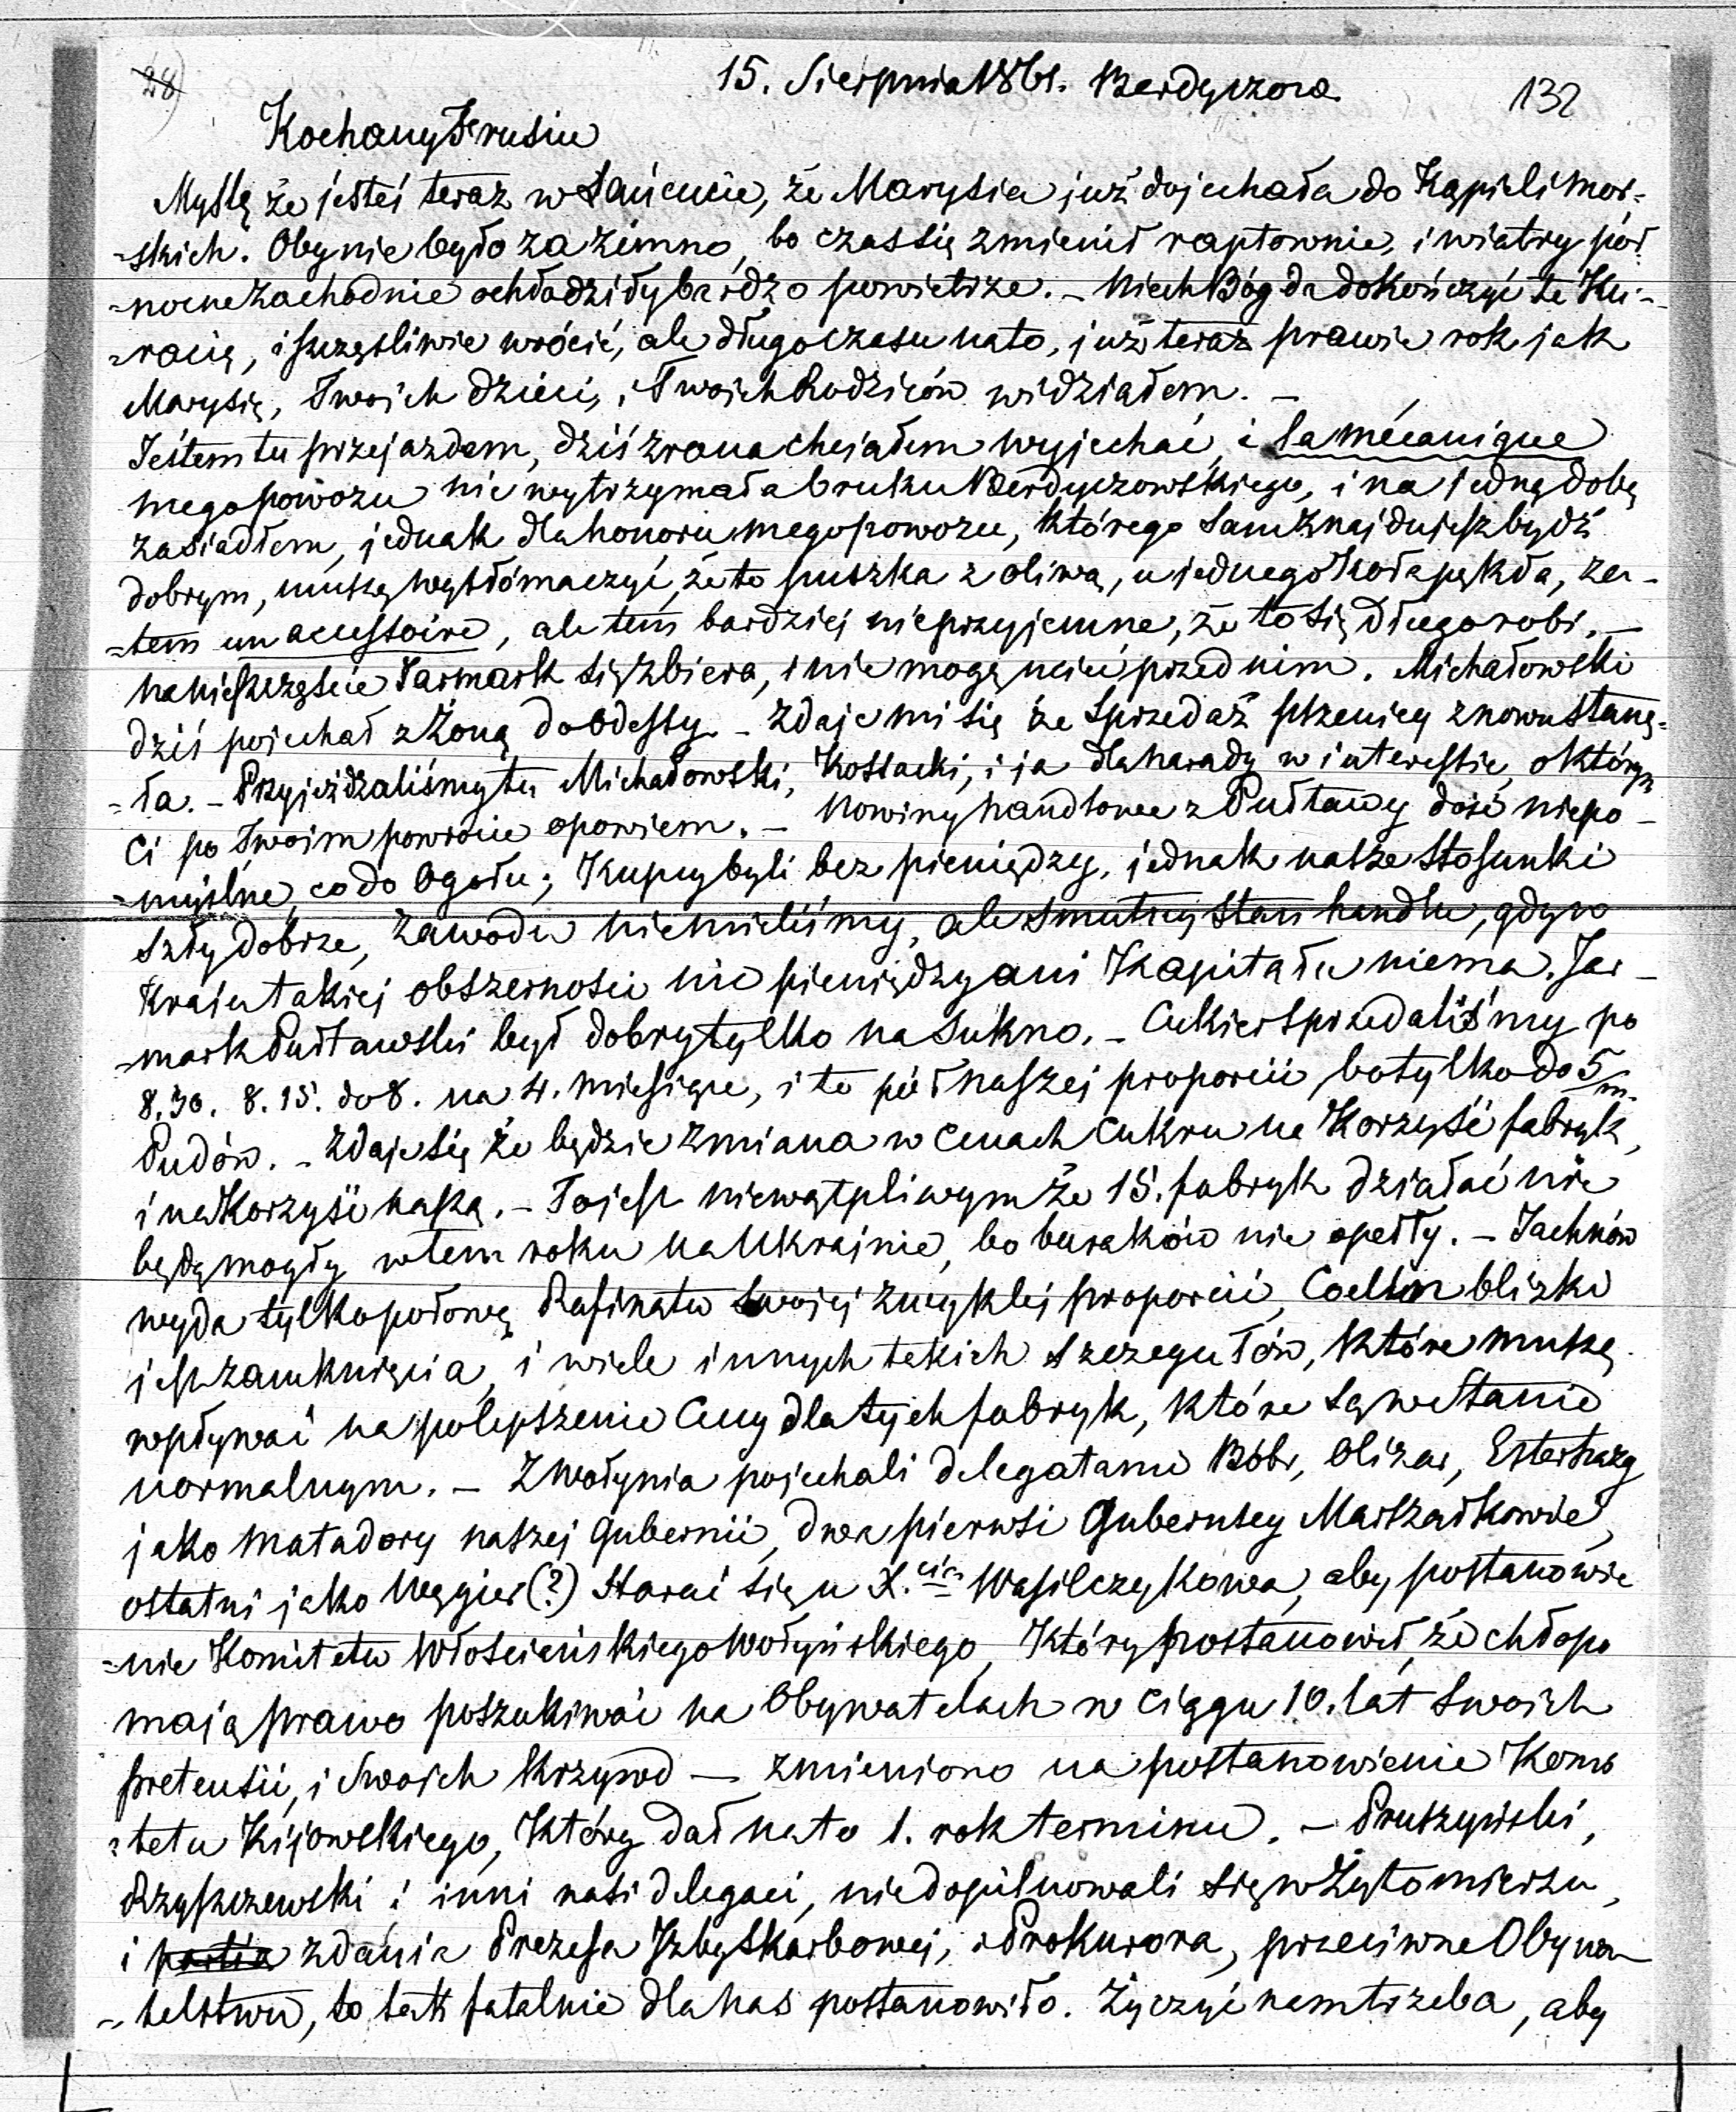 28) 15. Sierpnia 1861. Berdyczow. 132
Kochany Frusiu
Myślę że jesteś teraz w Łańcucie, że Marysia już dojechała do Kąpieli mor-
-skich. Oby nie było za zimno, bo czas się zmienił raptownie, i wiatry pół
-nocne zachodnie ochłodziły bardzo powietrze. – Niech Bóg da dokończyć te Ku-
-racię, i szczęsliwie wrócić, ale długo czasu na to, już teraz prawie rok jak
Marysię, Twoich dzieci, i Twoich Rodziców widziałem. –
Jestem tu przejazdem, dziś zrana chciałem wyjechać, i la mécanique
mego powozu nie wytrzymała bruku Berdyczowskiego, i na jedną dobę
zasiadłem, jednak dla honoru mego powozu, którego sam znajdujesz bydź
dobrym, muszę wytłómaczyć, że to puszka z oliwą, u jednego koła pękła, za-
-tem un accessoire, ale tem bardziej nieprzyjemne, że to się długo robi. –
na nieszczęście Jarmark się zbiera, i nie mogę uciec przed nim. Michałowski
dziś pojechał z Żoną do Odessy. – Zdaje mi się że sprzedaż pszenicy znowu stanę-
-ła. – Przyjeżdzaliśmy tu Michałowski, Kossacki, i ja dla narady w interessie, o którym
Ci po Twoim powrocie opowiem. – Nowiny handlowe z Pułtawy dość niepo-
-myślne, co do Ogołu; Kupcy byli bez pieniędzy, jednak nasze stosunki
szły dobrze, zawodu nie mieliśmy, ale smutny stan handlu, gdy w
Kraju takiej obszernosci nic pieniędzy ani Kapitału niema. Jar-
-mark Pułtawski był dobry tylko na sukno. – Cukier sprzedaliśmy po
8.30. 8.15. do 8. na 4. miesiące, i to pół naszej proporcii bo tylko do 5/m.
Pudów. – Zdaje się że będzie zmiana w cenach cukru na Korzyść fabryk,
i na Korzyść naszą. – To jest niewątpliwym że 15. fabryk działać nie
będą mogły w tem roku na Ukrajnie, bo buraków nie opełły. – Jachnów
wyda tylko połowę Rafinatu swojej zwykłej proporcii, blizki
jest zamknięcia, i wiele innych takich szczegułów, które muszą
wpływać na polepszenie Ceny dla tych fabryk, które są w Stanie
normalnym. – Z Wołynia pojechali delegatami Bóbr, Olizar, Esterhazy
jako matadory naszej Gubernii, dwa pierwsi Gubernscy Marszałkowie,
ostatni jako Węgier (?) starać się u X.cia Wasilczykowa, aby postanowie
-nie Komitetu Włościeńskiego Wołyńskiego, Który postanowił, że chłopi
mają prawo poszukiwać na Obywatelach w ciągu 10. lat swoich
pretensii, i swoich krzywd — zmieniono na postanowienie Komi
-tetu Kijowskiego, Który dał na to 1. rok terminu. – Pruszyński,
Rzyszczewski i inni nasi delegaci, niedopilnowali się w Żytomierzu,
i zdania Prezesa Izby Skarbowej, i Prokurora, przeciwne Obywa-
-telstwu, to tak fatalnie dla nas postanowiło. Życzyć nam trzeba, aby